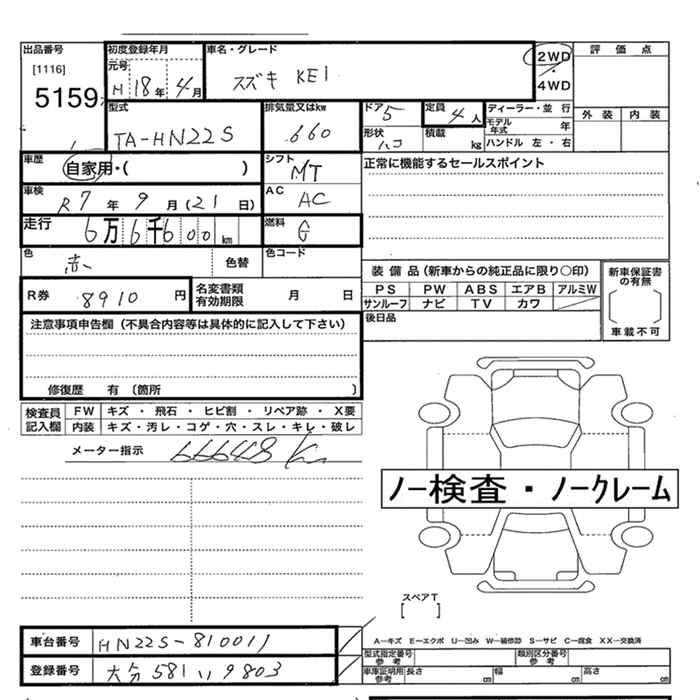 出品番号
[1116]
5159
初度登録年月
元号
H 18年 4月
車名・グレード
スズキ KEI
2WD
・
4WD
評価点
外装 内装
型式
TA-HN22S
排気量又はkw
.660
ドア 5
形状 ハコ
定員 4人
積載 kg
ディーラー・並行
モデル年式 年
ハンドル 左・右
車歴
自家用・( )
シフト MT
正常に機能するセールスポイント
車検
R7年 9月(21日)
AC AC
走行
6万6千600km
燃料 G
色 赤 色替
色コード
装備品(新車からの純正品に限り○印)
PS PW ABS エアB アルミW
サンルーフ ナビ TV カワ
後日品
新車保証書の有無
[ ]
車載不可
R券 8910円
名変書類有効期限 月 日
注意事項申告欄(不具合内容等は具体的に記入して下さい)
修復歴 有 (箇所 )
検査員記入欄
FW キズ・飛石・ヒビ割・リペア跡・X要
内装 キズ・汚レ・コゲ・穴・スレ・キレ・破レ
メーター指示 66648 Km
ノー検査・ノークレーム
スペアT
[ ]
A-キズ E-エクボ U-凹み W-補修跡 S-サビ C-腐食 XX-交換済
車台番号 HN22S-810011
登録番号 大分 581 い 9803
型式指定番号 参考
類別区分番号 参考
車庫証明用 参考 長さ cm 幅 cm 高さ cm